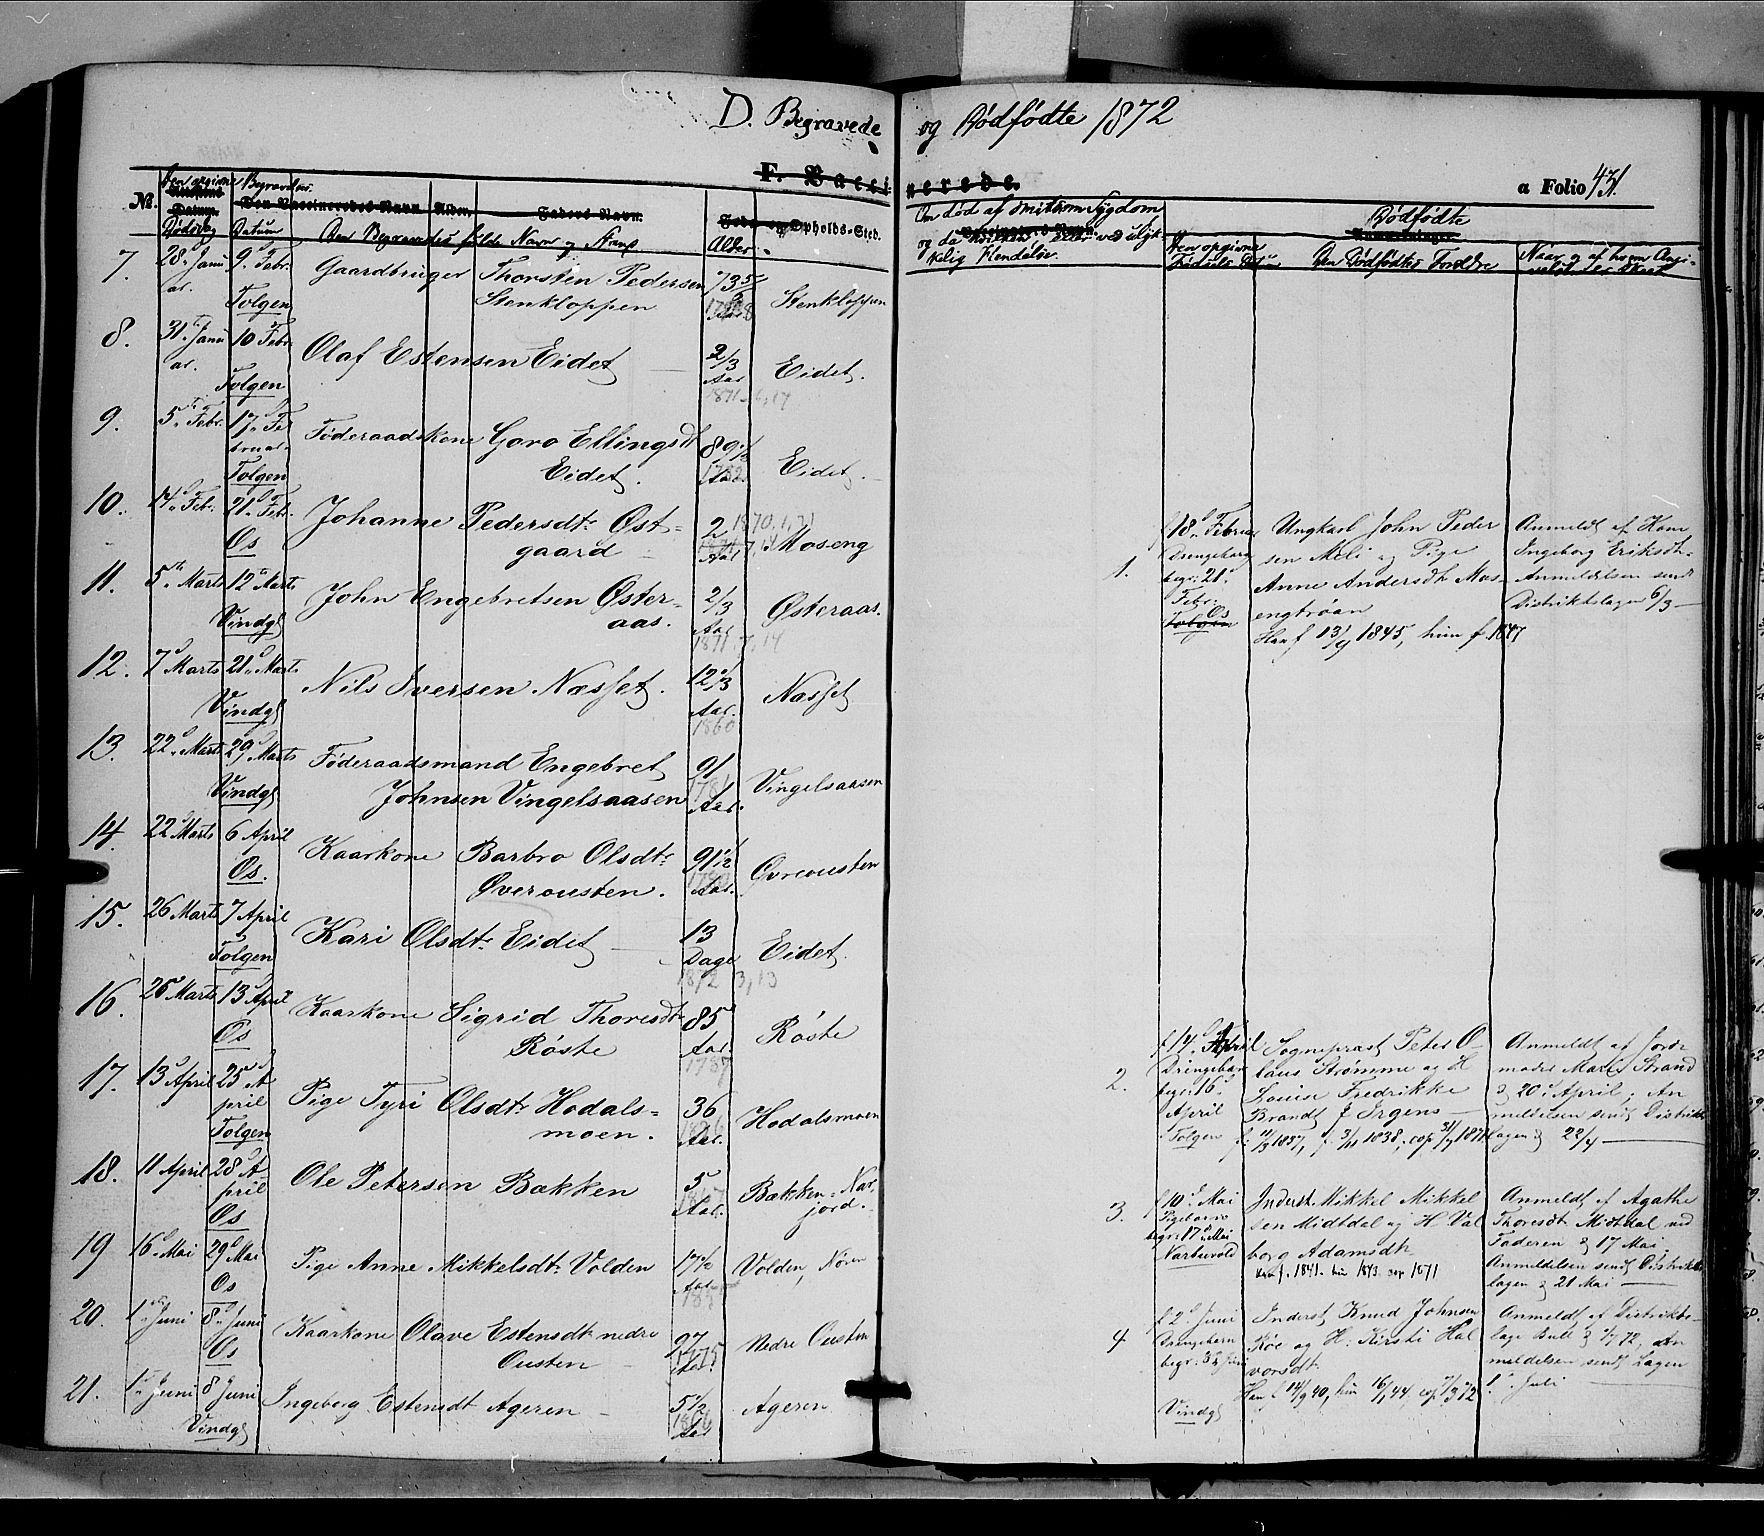 D. Begravede og Dødfødte 1872
F. Vaccinerede.
a Folio 431
No.
Den opgivne Dødsdag
Begravelses Datum
Den Begravedes fulde Navn og Stand
Alder.
Opholds-Sted.
Om død af smitsom Sygdom,
og da hvilken eller ved ulyk-
kelig Hendelse.
Dødfødte
Den opgivne Fødsels Datum
Den Dødfødtes Foreldre
Naar og af hvem
7. 28. Janu 9. Febr. Gaardbruger Thorsten Pedersen 73 5/
ar. Tolgen Stenkloppen Aar. Stenkloppen
8. 31. Janu 10 Febr. Olaf Estensen Eidet 2/3
ar. Tolgen Aar Eidet.
1871-6,17
9. 5. Febr. 17. Fe Føderaadskone Goro Ellingsdt 89 1/2
bruar Tolgen Eidet. Aar Eidet.
10. 14. Febr. 21. Febr. Johanne Pedersdt. Øst- 2 1870,1,
Os gaard Aar Moseng
11. 5 Marts 12 Marts John Engebretsen Øster- 2/3
Vindgl aas. Aar Østeraas.
1871,7,14
12. 7 Marts 21. Marts Nils Iversen Næsset. 12 2/3
Vindgl Aar. Næsset
1860
13. 22. Marts 29 Marts Føderaadsmand Engebret 91
Vindgl Johnsen Vingelsaasen Aar. Vingelsaasen
14. 22 Marts 6 April Kaarkone Barbro Olsdt. 91 1/2
Os. Øverousten. Aar. Øvreousten
15. 26 Marts 7 April Kari Olsdt. Eidet 13
Tolgen Dage Eidet.
1872 3,13
16. 26 Marts 13 April Kaarkone Sigrid Thoresdt 85
Os Røste Aar. Røste
1787
17. 13 April 25 A Pige Tyri Olsdt. Hodals- 36
pril Tolgen moen. Aar. Hodalsmoen
18. 11 April 28 A Ole Petersen Bakken 5
pril Os Aar. Bakken - Nar
jord.
19 16. Mai 29 Mai Pige Anne Mikkelsdt. Volden 17 1/2
Os Aar Volden, Nøren
20. 1. Juni 8. Juni Kaarkone Olave Estensdt. nedre 97
Os Ousten Aar. Nedre Ousten
1775
21. 1. Juni 8 Juni Ingeborg Estensdt Ageren 5 1/2
Vindgl Aar Ageren
1866
1. f 18. Februar Ungkarl John Peder Anmeldt af Kone
Drengebarn sen Meli og Pige Ingeborg Eriksdt.
begr. 21. Anne Andersdt. Mos- Anmeldelsen sendt
Febr. engtrøan Distriktslagen 6/3
Os Tolgen
Han f 13/9 1845, hun f 1847
2. f 14. April Sogneprest Peter O- Anmeldt af Jord-
Drengebarn laus Strømme og H. madre Maret Strand
begr. 16 Louise Fredrikke d 20 April; An
April Brandt f Irgens meldelsen sendt Distrikts
Tolgen f. 1837, f. 3/11 1838, cop 31/ 1871 lagen d. 22/4
3. f 10. Mai Inderst Mikkel Mikkel Anmeldt af Agathe
Pigebarn sen Midtdal og H. Val Thoresdt. Midtdal ved
begr. 17 Mai borg Adamsdt. Faderen d 17 Mai,
Narbuvold Han f. 1841. hun 1843. cop 1871 Anmeldelsen sendt Distrikts
lagen d 21 Mai
4 f 2. Juni Inderst Knud Johnsen Anmeldt af Distrikts-
Drengebarn Røe og H. Kirsti Hal læge Bull d 1/7 72, An
begr. 8 Juni vorsdt. meldelsen sendt Lagen
Vindgl Han f 14/9 40, hun 16/ 44, cop 7/3 72 1. Juli